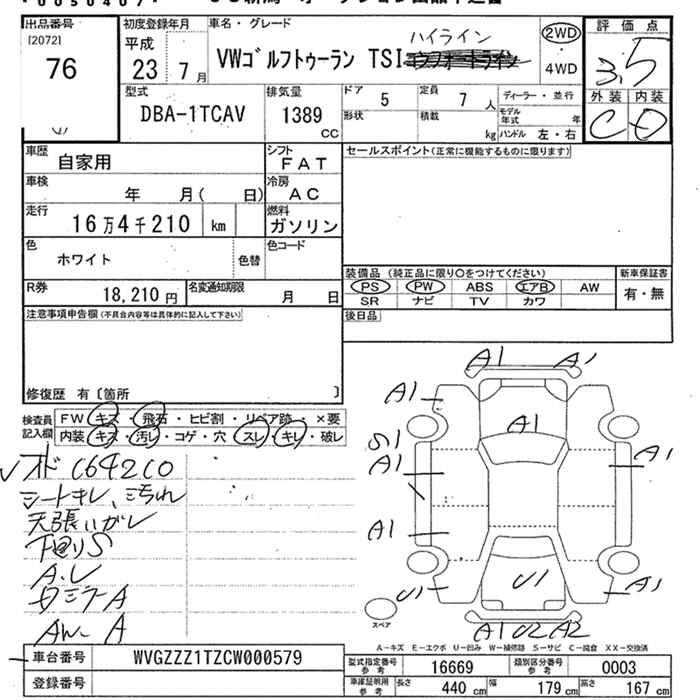 出品番号 初度登録年月 車名・グレード 評価点
[2072] 76
平成 23 7月
VWゴルフトゥーラン TSI ハイライン
2WD・4WD
3.5
外装 内装
C D
型式 DBA-1TCAV
排気量 1389 CC
ドア 5
定員 7 人
形状 積載 kg
ディーラー・並行
モデル年式 年
ハンドル 左・右
車歴 自家用
シフト FAT
車検 年 月( 日)
冷房 AC
走行 16万4千210 km
燃料 ガソリン
色 ホワイト 色替 色コード
R券 18,210円
名変通知期限 月 日
セールスポイント(正常に機能するものに限ります)
装備品 (純正品に限り○をつけてください) 新車保証書
PS PW ABS エアB AW 有・無
SR ナビ TV カワ
後日品
注意事項申告欄(不具合内容等は具体的に記入して下さい)
修復歴 有〔箇所 〕
検査員記入欄
FW キズ・飛石・ヒビ割・リペア跡・×要
内装 キズ・汚レ・コゲ・穴・スレ・キレ・破レ
シートキレ、汚れ
天張りいがレ
下回りS
A.L
AW A
A1 A1
A1
A1
S1
A1
A1
A1
U1
U1
A1
A1 U2 A2
スペア
A-キズ E-エクボ U-凹み W-補修跡 S-サビ C-腐食 XX-交換済
車台番号 WVGZZZ1TZCW000579
登録番号
型式指定番号参考 16669 類別区分番号参考 0003
車庫証明用参考 長さ 440 cm 幅 179 cm 高さ 167 cm